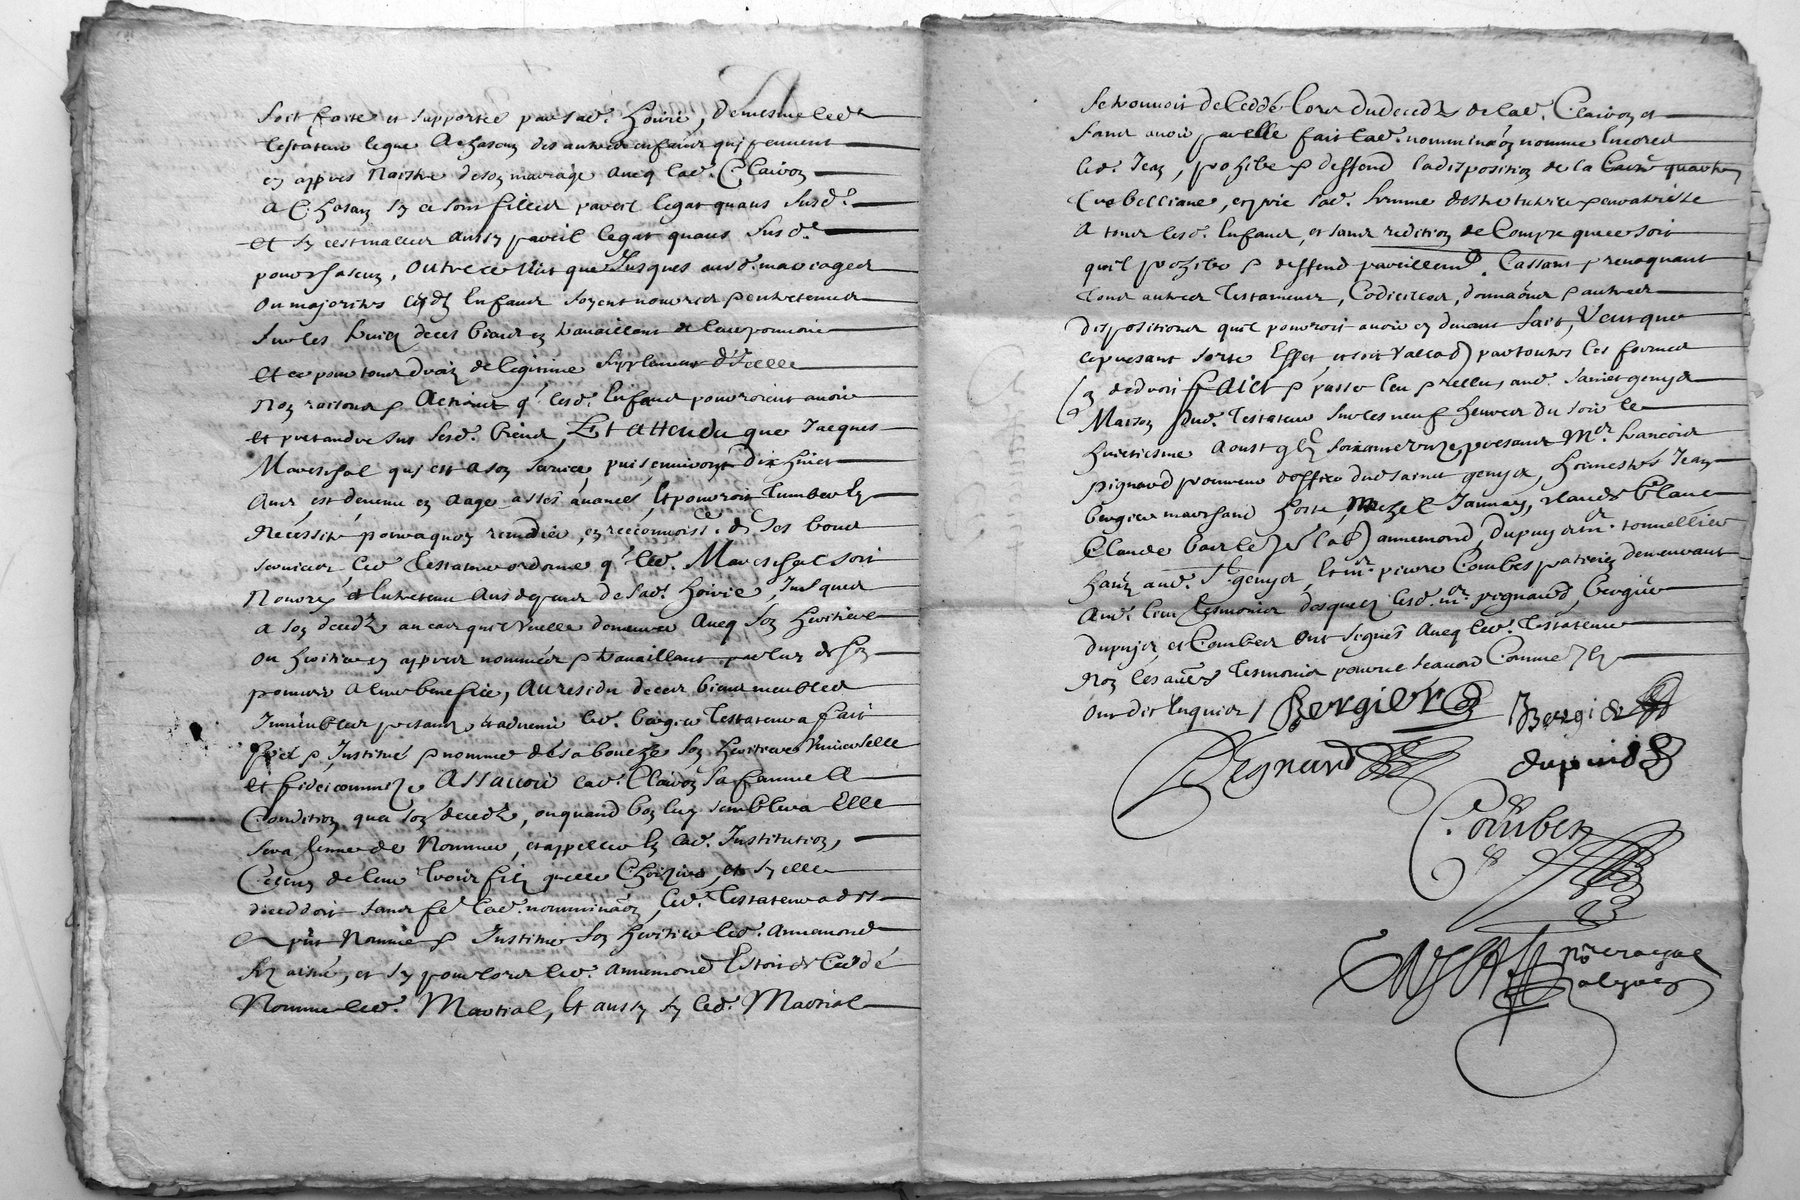 soit faitte et supportee par sad. hoirie, De mesme led.
testateur legue A chascun des autres enfans quj peuuent
cy appres Naistre de son mariage aueq lad. Claiuon
A Chascun sy ce sont filles pareil legat quaus susd.
et sy cest malles aussy pareil legat quaus susd.
pour chascun, outre ce veut que Jusques ausd. mariages
ou majorites lesd. Enfans soyent nourris & entretenus
sur les fruicts de ces biens en trauaillant de leur pouuoir
et ce pour tous droits de legitime supplement d'Icelle
Noms raisons & Actions q. lesd. Enfans pourroient auoir
et pretandre sus sesd. biens, Et attendu que Jacques
Mareschal quj est a son seruice, puis enuiron dix huict
Ans, est deuenu en aage assés auancés, Et pourroit tumber En
Nécessité pour aquoy remedier, en reconnoiss.ce de ses bons
seruices led. testateur ordonne q. led. Mareschal soit
Nourry et Entretenu aus despens de sad. hoirie, Jusques
a son deceds au cas quil veuille demeurer Aueq son heritiere
ou heritier cy appres nommés & trauaillant par luy de son
pouuoir a leur benefice, Au residu de ces biens meubles
Immeubles presans et aduenir led. bergier testateur a fait
créé & Institué & nommé de sa bouche son heritiere vniuerselle
et fideicommise Assauoir lad. Claiuon sa femme A la
Condition qua son deceds, ou quand bon luy semblera Elle
sera tenue de Nommer, et appeller En lad. Institution,
Celuy de leurs trois fils quelle choizira et sy elle
deceddoit sans fe. lad. nomminaon, led. testateur a dit
Nommé & Institué son heritier led. Annemond
filz aisné, et sy pour lors led. annemond Estoit deceddé
Nomme led. Martial, Et aussy sy led. Martial
se trouuoit deceddé Lors du deceds de lad. Claiuon et
sans auoir par elle fait lad. nomminaon nomme Encores
led. Jean, prohibe & deffend la disposition de la quarte
trebelliane, et prie sad. femme destre tutrice & curatrisse
A tous lesd. Enfans, et sans redition de Compte que ce soit
quil prohibe & deffend pareillem.t Cassant & reuoquant
tous autres testamens, Codicilles, donnaons & autres
dispositions quil pourroit auoir cy deuant fait, Veut que
le present sorte Effet et soit vallab) par toutes les formes
de droit faict & passé leu & rellu aud. sainct genys
Maison dud. testateur sur les neuf heures du soir le
huictiesme Aoust presans Mtre francois
pignard pourueu doffice dud sainct genys, honnestes Jean
bergier marchand hoste, Michel Januay, Claude blanc
Claude annemond dupuy tonnellier
hants aud. St genys, Et mtre pierre Combes patissier demeurant
Aud. lieu tesmoins desquels lesd. mtre pignard, bergier
dupuys et Combes ont signés Aueq led. testateur
Non les aues tesmoins pour ne scauoir Comme Ils
ont dit Enquis / Bergier Bergier
Pegnard dupuids
Combes
nre royal